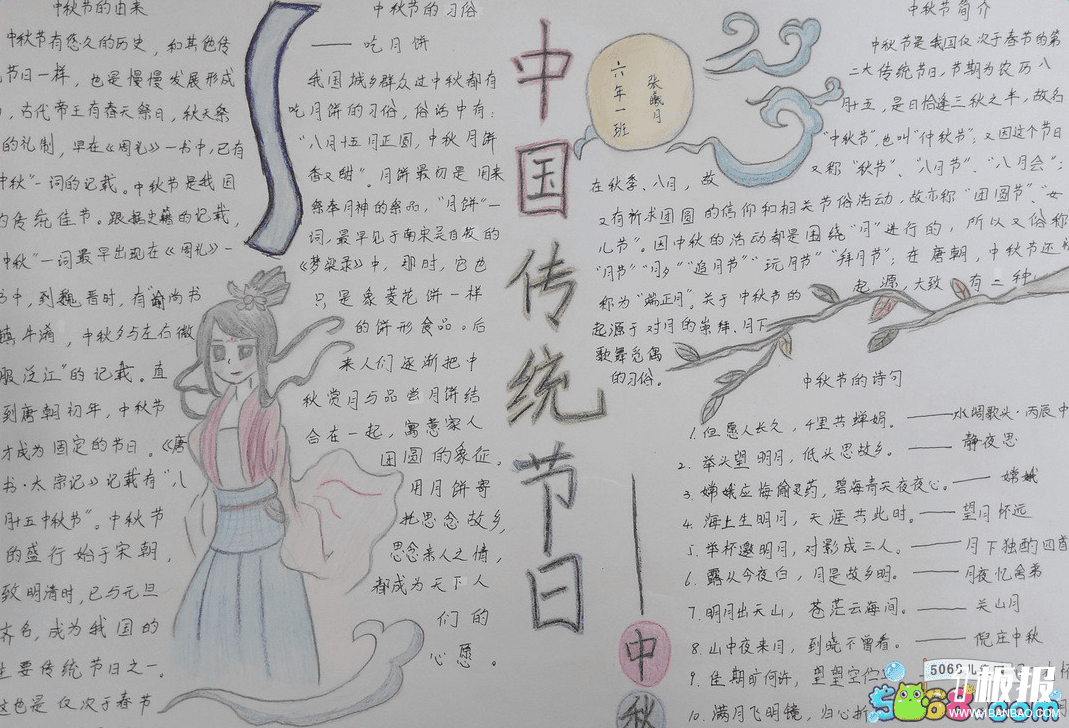 中秋节的由来
中秋节有悠久的历史，和其他传
节日一样，也是慢慢发展形成
，古代帝王有春天祭日，秋天祭
的礼制，早在《周礼》一书中，已有
中秋"一词的记载。中秋节是我国
的传统佳节。跟据史籍的记载，
中秋"一词最早出现在《周礼》一
书中，到魏晋时，有"谕尚书
镇牛渚，中秋夕与左右微
服泛江"的记载。直
到唐朝初年，中秋节
才成为固定的节日。《唐
书·太宗记》记载有"八
月十五中秋节"。中秋节
的盛行始于宋朝，
致明清时，已与元旦
齐名，成为我国的
主要传统节日之一。
这也是仅次于春节
中秋节的习俗
——吃月饼
我国城乡群众过中秋都有
吃月饼的习俗，俗话中有：
"八月十五月正圆，中秋月饼
香又甜"。月饼最初是用来
祭奉月神的祭品，"月饼"一
词，最早见于南宋吴自牧的
《梦梁录》中，那时，它也
只是象菱花饼一样
的饼形食品。后
来人们逐渐把中
秋赏月与品尝月饼结
合在一起，寓意家人
团圆的象征。
用月饼寄
托思念故乡，
思念亲人之情，
都成为天下人
们的
心愿。
中国传统节日
——中秋
六年一班
张曦月
中秋节简介
中秋节是我国仅次于春节的第
二大传统节日，节期为农历八
月十五，是日恰逢三秋之半，故名
"中秋节"，也叫"仲秋节"；又因这个节日
在秋季、八月，故又称"秋节"、"八月节"、"八月会"；
又有祈求团圆的信仰和相关节俗活动，故亦称"团圆节"、"女
儿节"。因中秋的活动都是围绕"月"进行的，所以又俗称
"月节""月夕""追月节""玩月节""拜月节"；在唐朝，中秋节还
称为"端正月"。关于中秋节的起源，大致有三种：
起源于对月的崇拜、月下
歌舞觅偶
的习俗。
中秋节的诗句
1. 但愿人长久，千里共蝉娟。——水调歌头·丙辰中
2. 举头望明月，低头思故乡。——静夜思
3. 嫦娥应悔偷灵药，碧海青天夜夜心。——嫦娥
4. 海上生明月，天涯共此时。——望月怀远
5. 举杯邀明月，对影成三人。——月下独酌四首
6. 露从今夜白，月是故乡明。——月夜忆舍弟
7. 明月出天山，苍茫云海间。——关山月
8. 山中夜来月，到晓不曾看。——倪庄中秋
9. 佳期旷何许，望望空伫
10. 满月飞明镜，归心折
5068儿
板报
WWW.1BANBAO.COM